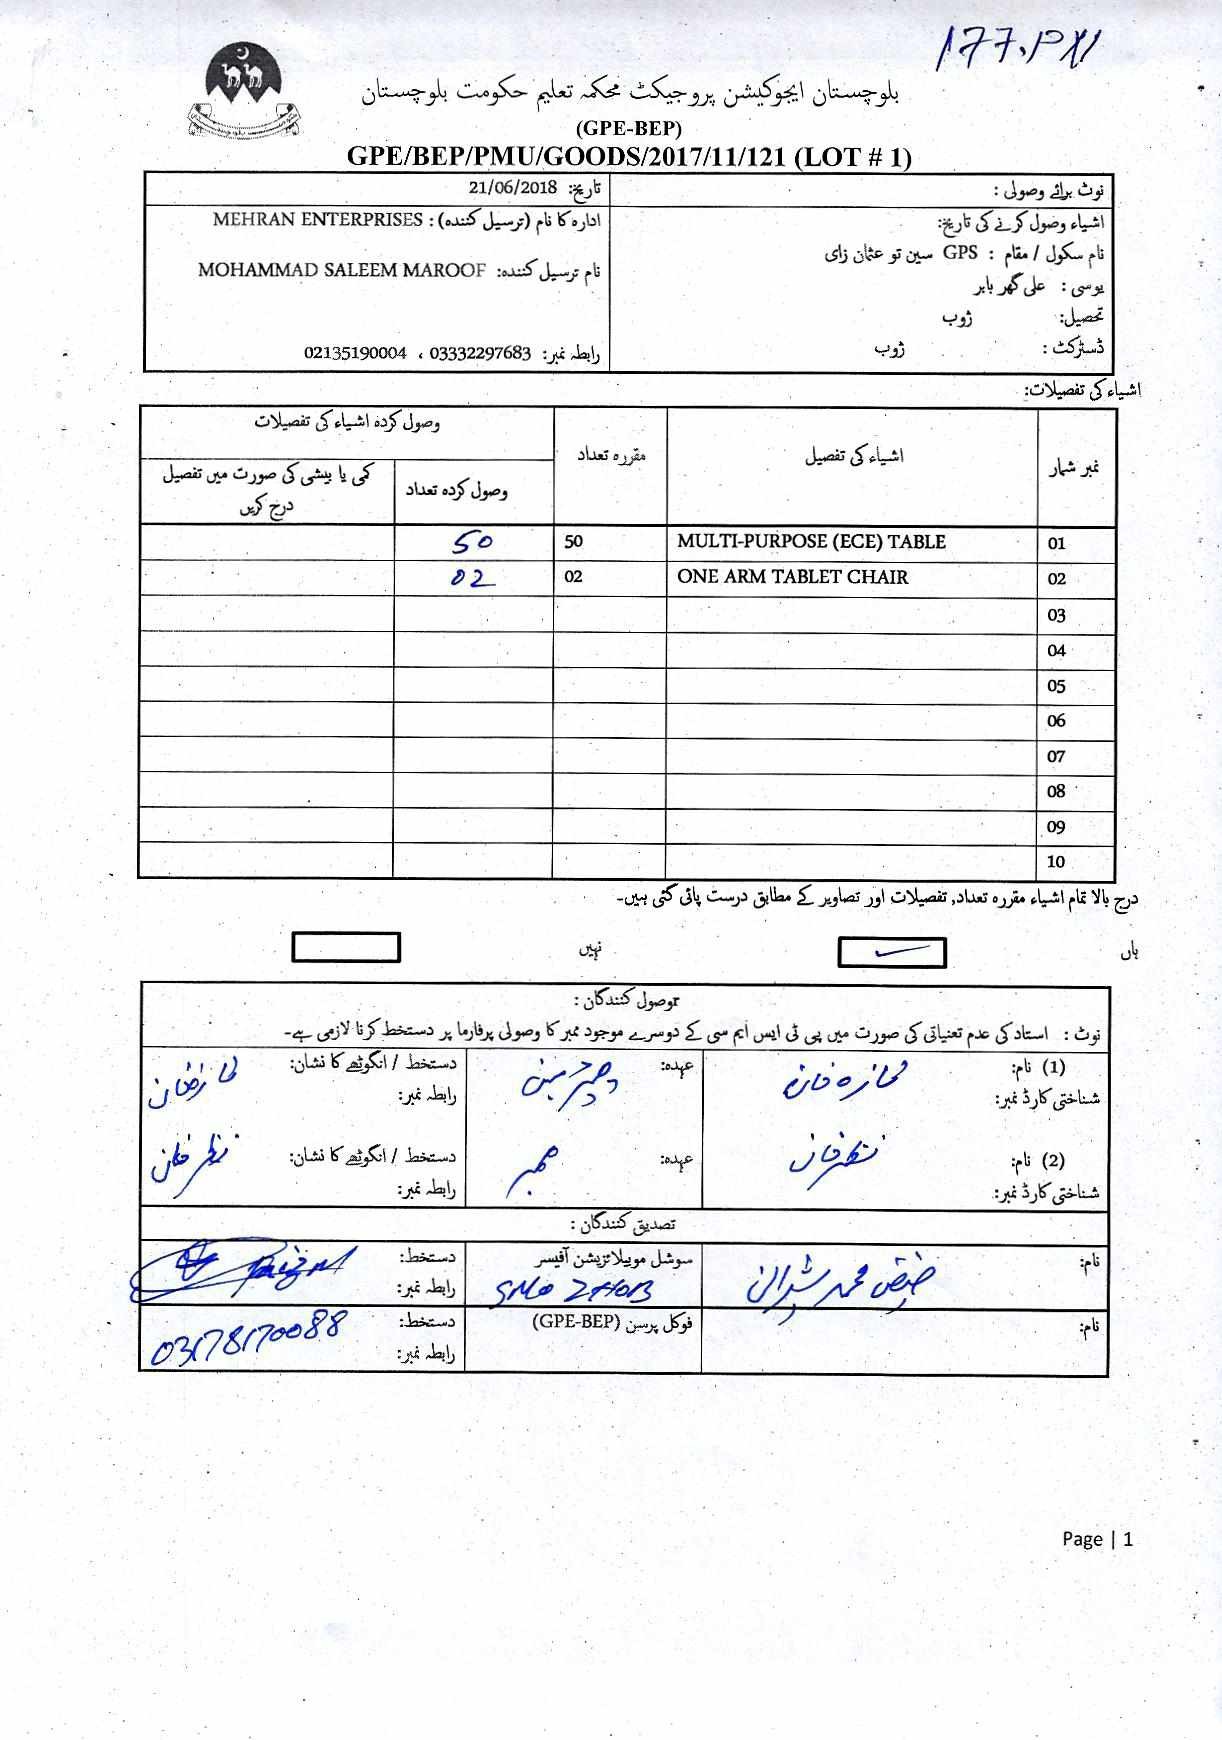 بلوچستان ایجوکیشن پروجیکٹ محکمہ تعلیم حکومت بلوچستان
(GPE-BEP)
GPE/BEP/PMU/GOODS/2017/11/121 (LOT # 1)
نوٹ برائے وصولی :
تاریخ: 21/06/2018
اشیاء وصول کرنے کی تاریخ:
ادارہ کا نام (ترسیل کنندہ) : MEHRAN ENTERPRISES
نام سکول / مقام : GPS سین تو عثمان زای
نام ترسیل کنندہ: MOHAMMAD SALEEM MAROOF
یوسی : علی گھر بابر
تحصیل: ژوب
ڈسٹرکٹ : ژوب
رابطہ نمبر: 03332297683 ، 02135190004
اشیاء کی تفصیلات:
نمبر شمار اشیاء کی تفصیل مقررہ تعداد وصول کردہ اشیاء کی تفصیلات
وصول کردہ تعداد کمی یا بیشی کی صورت میں تفصیل درج کریں
01 MULTI-PURPOSE (ECE) TABLE 50 50
02 ONE ARM TABLET CHAIR 02 02
03
04
05
06
07
08
09
10
درج بالا تمام اشیاء مقررہ تعداد, تفصیلات اور تصاویر کے مطابق درست پائی گئی ہیں۔
ہاں نہیں
وصول کنندگان :
نوٹ : استاد کی عدم تعنیاتی کی صورت میں پی ٹی ایس ایم سی کے دوسرے موجود ممبر کا وصولی پرفارما پر دستخط کرنا لازمی ہے۔
(1) نام: عہدہ: دستخط / انگوٹھے کا نشان:
شناختی کارڈ نمبر: رابطہ نمبر:
(2) نام: نظر خان عہدہ: ممبر دستخط / انگوٹھے کا نشان: نظر خان
شناختی کارڈ نمبر: رابطہ نمبر:
تصدیق کنندگان :
نام: فیض محمد شیرانی سوشل موبیلائزیشن آفیسر دستخط:
SMO ZHOB رابطہ نمبر:
نام: فوکل پرسن (GPE-BEP) دستخط:
رابطہ نمبر: 03178170088
Page | 1